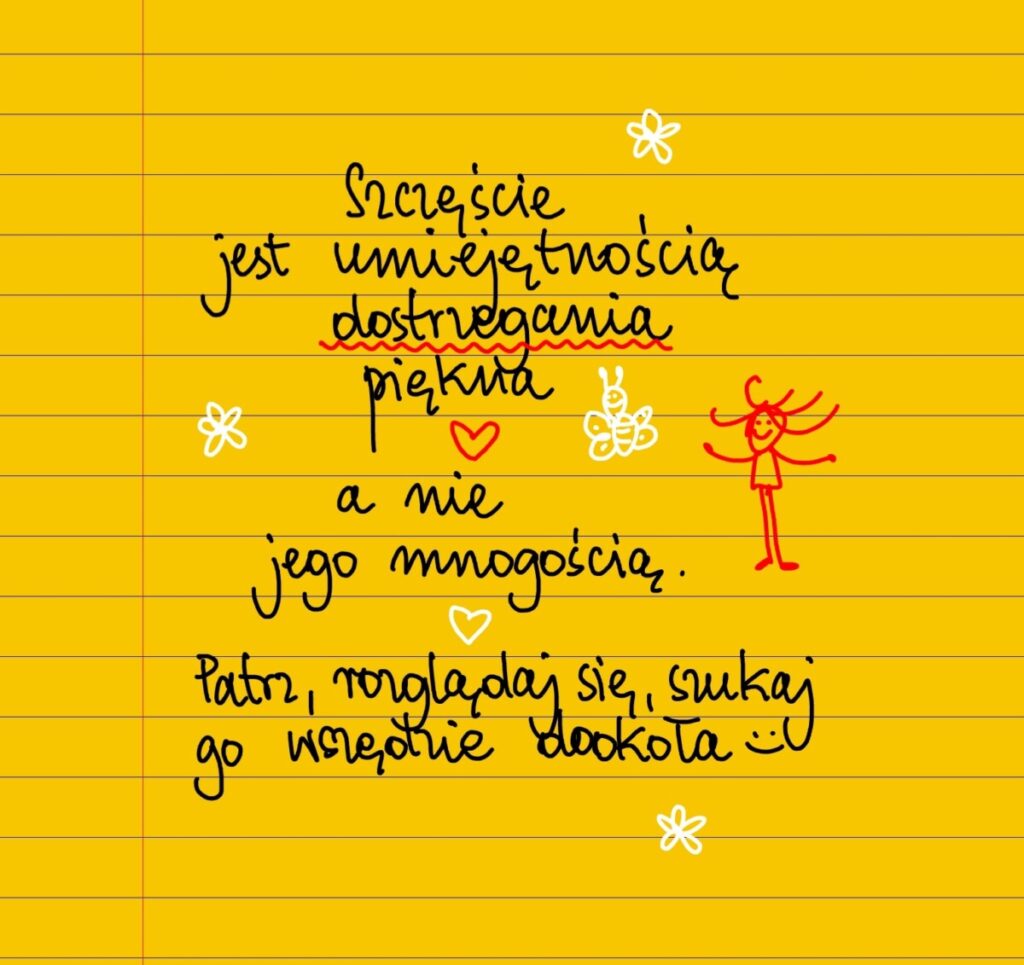 Szczęście
jest umiejętnością
dostrzegania
piękna
a nie
jego mnogością.
Patrz, rozglądaj się, szukaj
go wszędzie dookoła :)